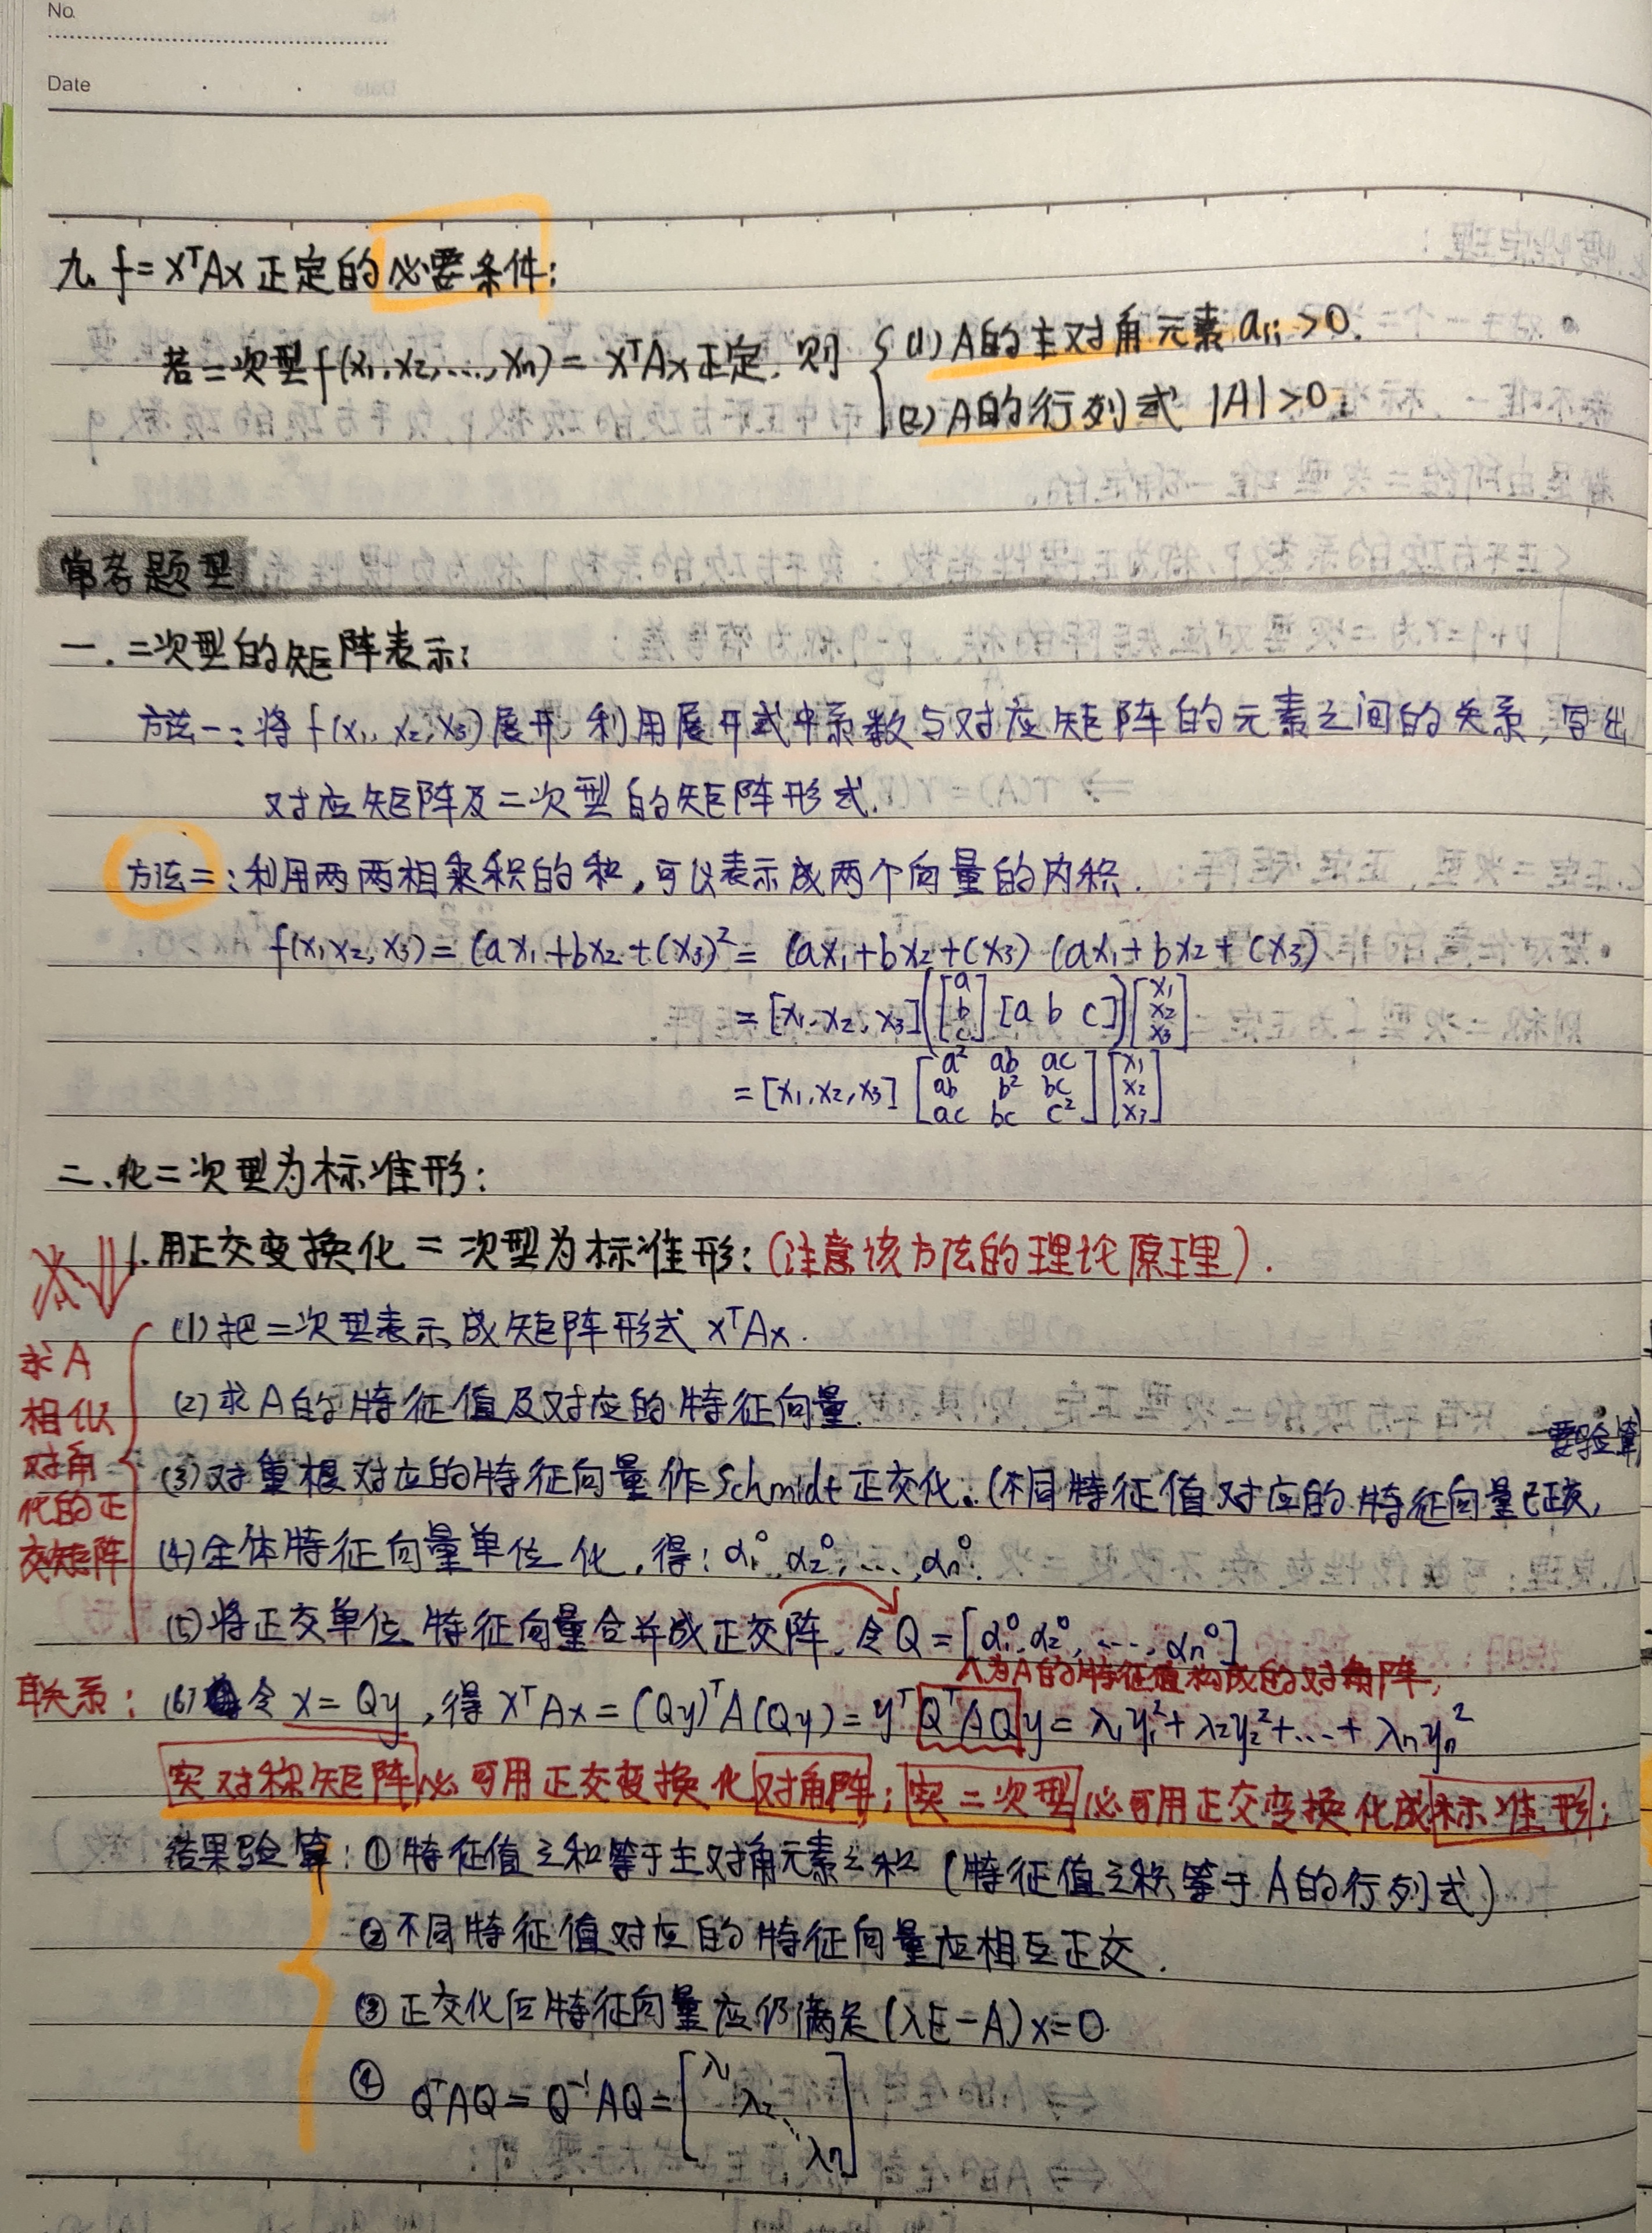 No.
Date
九、f=xᵀAx正定的必要条件:
若二次型f(x₁,x₂,...,xn)=xᵀAx正定,则 { (1) A的主对角元素 aᵢᵢ>0.
(2) A的行列式 |A|>0.
常考题型
一.二次型的矩阵表示:
方法一:将f(x₁,x₂,x₃)展开,利用展开式中系数与对应矩阵的元素之间的关系,写出
对应矩阵及二次型的矩阵形式.
方法二:利用两两相乘积的和,可以表示成两个向量的内积.
f(x₁,x₂,x₃)=(ax₁+bx₂+cx₃)²=(ax₁+bx₂+cx₃)(ax₁+bx₂+cx₃)
=[x₁,x₂,x₃]([a b c]ᵀ[a b c])[x₁ x₂ x₃]ᵀ
=[x₁,x₂,x₃][a² ab ac; ab b² bc; ac bc c²][x₁ x₂ x₃]ᵀ
二、化二次型为标准形:
1.用正交变换化二次型为标准形:(注意该方法的理论原理).
求A
相似
对角
化的正
交矩阵
(1)把二次型表示成矩阵形式 xᵀAx.
(2)求A的特征值及对应的特征向量.
要验算
(3)对重根对应的特征向量作Schmidt正交化.(不同特征值对应的特征向量已正交,
(4)全体特征向量单位化,得:α₁⁰,α₂⁰,...,αn⁰.
(5)将正交单位特征向量合并成正交阵,令Q=[α₁⁰,α₂⁰,...,αn⁰]
Λ为A的特征值构成的对角阵;
联系:(6)令x=Qy,得xᵀAx=(Qy)ᵀA(Qy)=yᵀQᵀAQy=λ₁y₁²+λ₂y₂²+...+λnyn²
实对称矩阵必可用正交变换化对角阵;实二次型必可用正交变换化成标准形;
结果验算:①特征值之和等于主对角元素之和(特征值之积等于A的行列式)
②不同特征值对应的特征向量应相互正交.
③正交化后特征向量应仍满足(λE-A)x=0.
④ QᵀAQ=Q⁻¹AQ=[λ₁ λ₂ ⋱ λn]